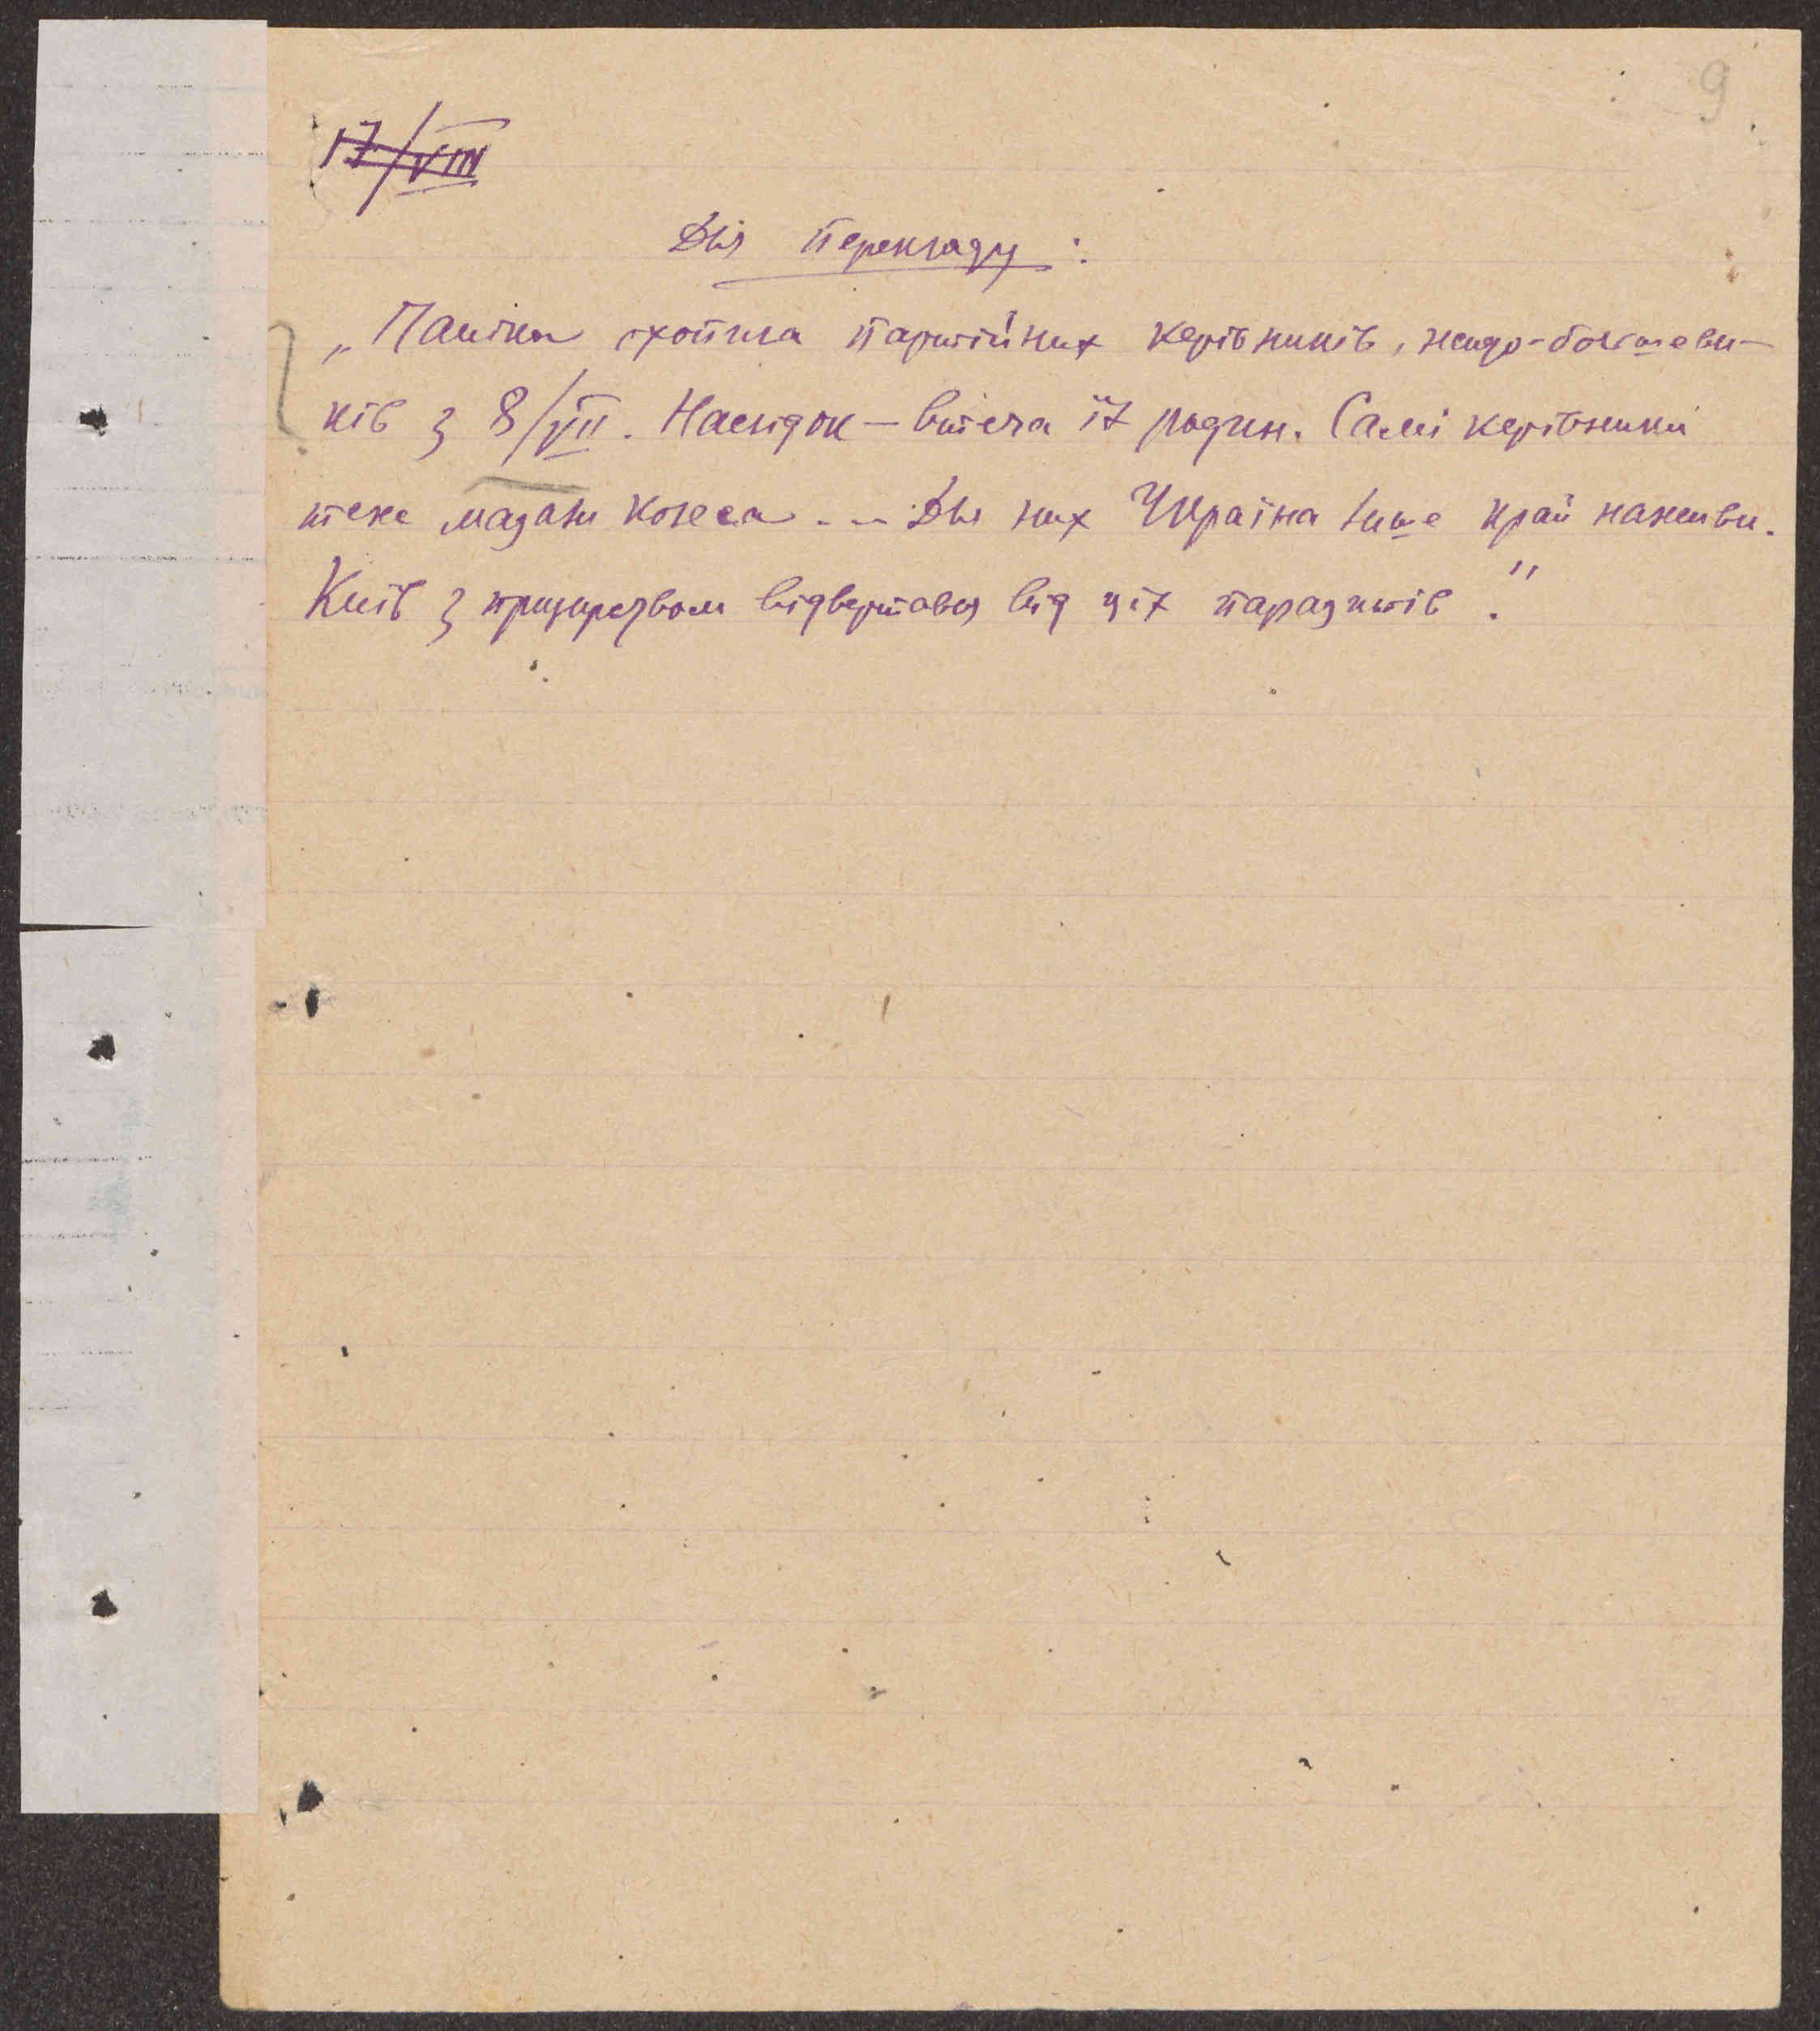 9
17/VIII
Для перекладу:
„Паніка охопила партійних керівників, жидо-большеви-
ків з 8/VII. Наслідок – втеча їх родин. Самі керівники
теж мазали колеса... Для них Україна лише край наживи.
Київ з призирством відвертався від цих паразитів."